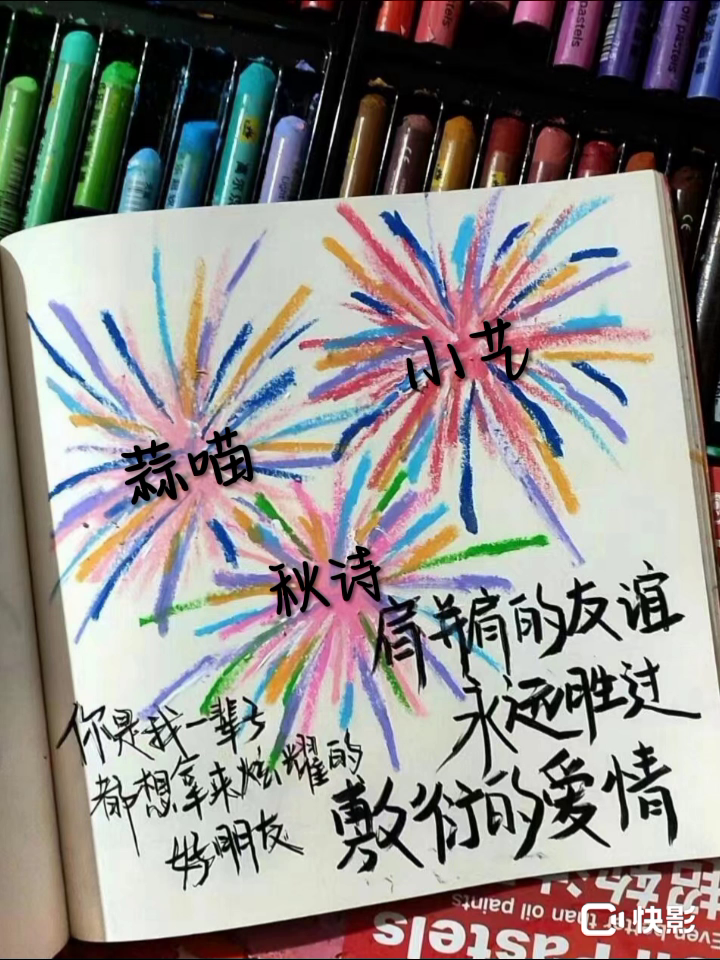 小艺
蒜喵
秋诗
肩并肩的友谊
永远胜过
敷衍的爱情
你是我一辈子
都想拿来炫耀的
好朋友
oil pastels
Even better than oil paints
Oil Pastels
快影